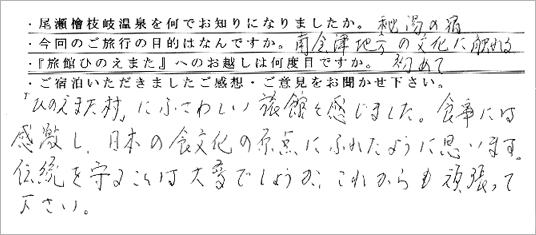 ・尾瀬檜枝岐温泉を何でお知りになりましたか。 秘湯の宿
・今回のご旅行の目的はなんですか。 南会津地方の文化に触れる
・『旅館ひのえまた』へのお越しは何度目ですか。 初めて
・ご宿泊いただきましたご感想・ご意見をお聞かせ下さい。
「ひのえまた村」にふさわしい旅館と感じました。食事には
感激し、日本の食文化の原点にふれたように思います。
伝統を守ることは大変でしょうが、これからも頑張って
下さい。